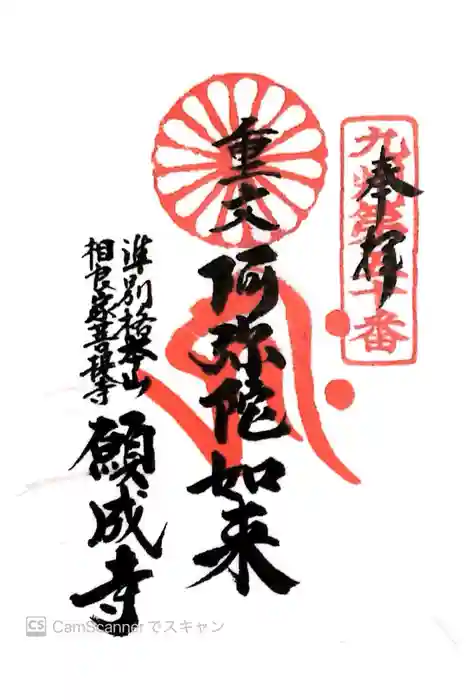 奉拝
九州第五十番
重文
阿弥陀如来
準別格本山
相良家菩提寺
願成寺
CS CamScannerでスキャン